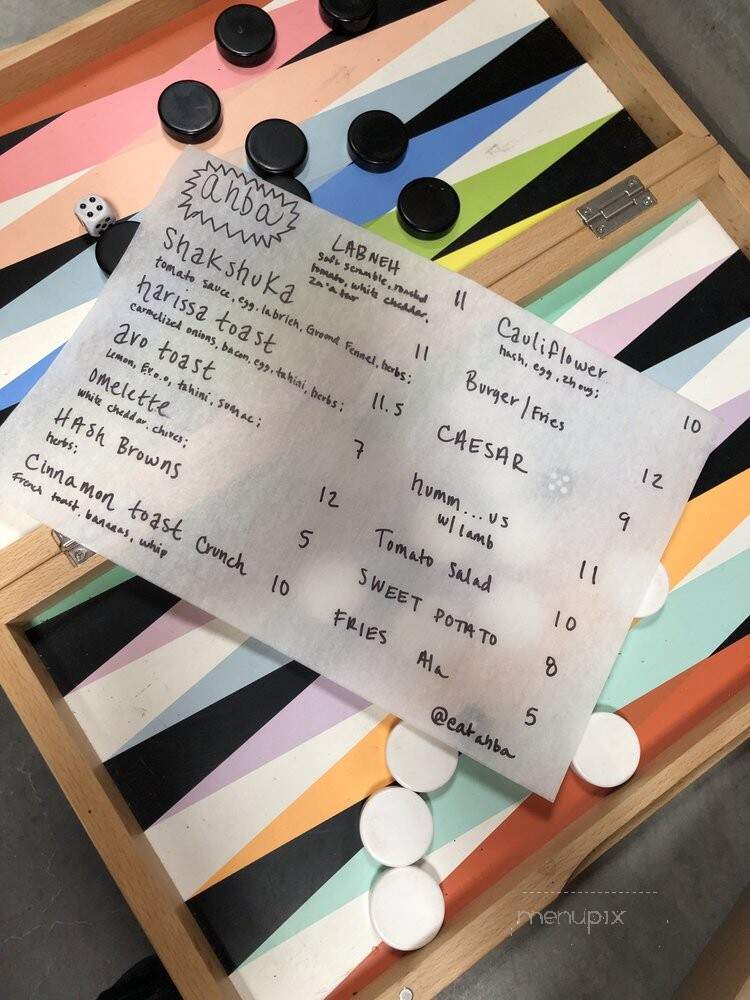 ahba
LABNEH 11
soft scramble, roasted
tomato, white cheddar,
Za'atar
Shakshuka 11
tomato sauce, egg, labneh, Ground Fennel, herbs;
harissa toast 11.5
carmelized onions, bacon, egg, tahini, herbs;
avo toast 7
Lemon, Evoo, tahini, sumac;
omelette 12
white cheddar, chives;
HASH BROWNS 5
herbs;
Cinnamon toast Crunch 10
French toast, bananas, whip
Cauliflower 10
hash, egg, zhoug;
Burger/Fries 12
CAESAR 9
humm...us 11
w/lamb
Tomato Salad 10
SWEET POTATO 8
FRIES 5
Ala
@eatahba
menupix